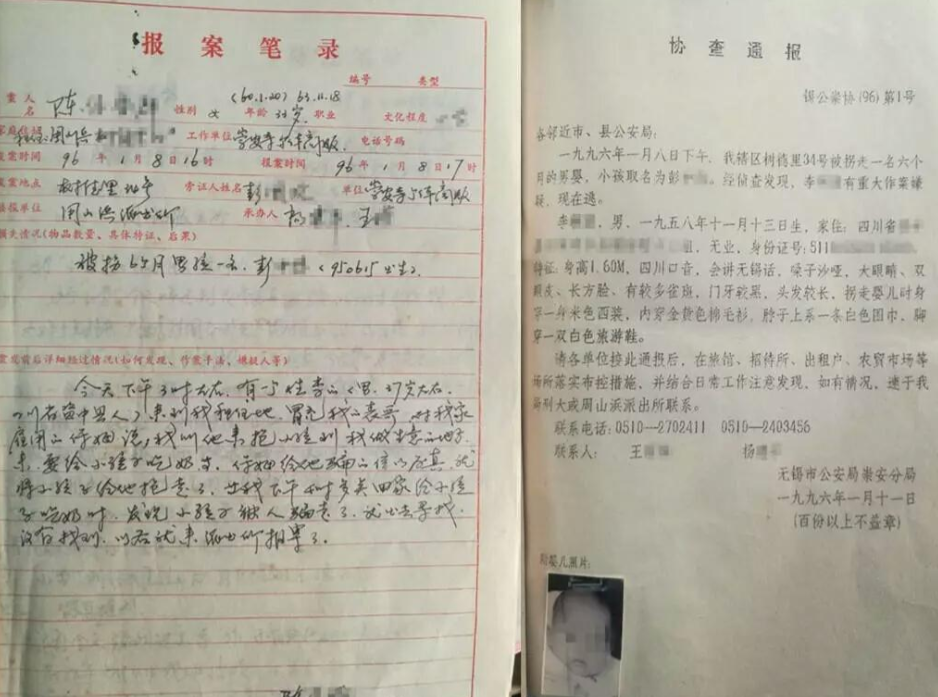 报案笔录
编号 类型
陈
(60.1.20) 63.11.18
性别 女 年龄 33岁 职业 文化程度
工作单位 崇安寺 电话号码
案时间 96年1月8日16时 报案时间 96年1月8日17时
案地点 树德里 旁证人姓名 彭 单位 崇安寺
报单位 派出所 承办人 杨 王
损失情况(物品数量、具体特证、后果)
被拐6个月男孩一名,彭 (950615出生).
案发前后详细经过情况(如何发现、作案手法、嫌疑人等)
今天下午3时左右,有一个姓李的男,37岁左右,
(川省 中县人)来到我租住地,冒充我的表哥,对我家
雇用的保姆说,我叫他来抱小孩到我做生意的地方
来,要给小孩子吃奶,保姆给他骗的信以为真,就
将小孩子给他抱走了,当我下午4时多类回家给小孩
子吃奶时,发现小孩子被人骗走了,就出去寻找,
没有找到,以后就来派出所报案了.
协查通报
锡公崇协(96)第1号
各邻近市、县公安局:
一九九六年一月八日下午,我辖区树德里34号被拐走一名六个
月的男婴,小孩取名为彭 。经侦查发现,李 有重大作案嫌
疑,现在逃。
李 ,男,一九五八年十一月十三日生,家住:四川省
组,无业,身份证号:511
特征:身高1.60M,四川口音,会讲无锡话,嗓子沙哑,大眼睛、双
眼皮、长方脸、有较多雀斑,门牙较黑,头发较长,拐走婴儿时身
穿一件米色西装,内穿金黄色棉毛衫,脖子上系一条白色围巾,脚
穿一双白色旅游鞋。
请各单位接此通报后,在旅馆、招待所、出租户、农贸市场等
场所落实布控措施,并结合日常工作注意发现,如有情况,速于我
局刑大或周山浜派出所联系。
联系电话:0510—2702411 0510—2403456
联系人: 王 杨
无锡市公安局崇安分局
一九九六年一月十一日
(百份以上不盖章)
附婴儿照片: